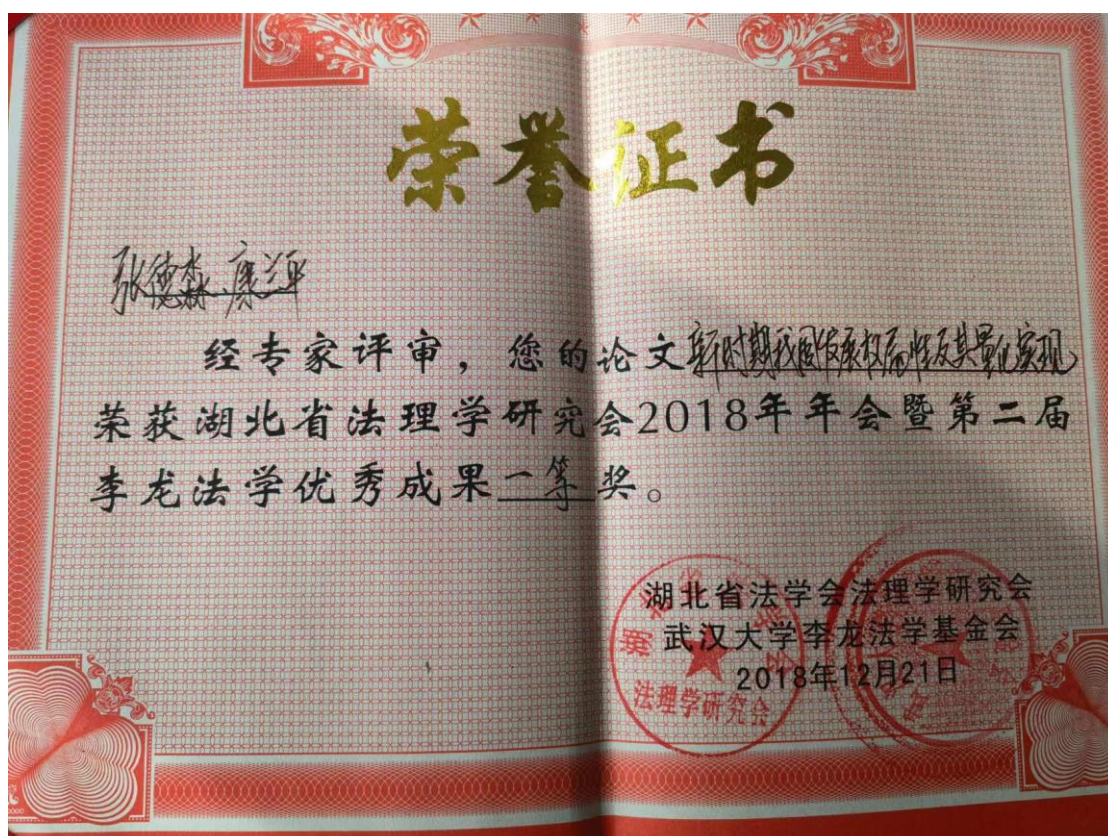 荣誉证书
张德淼、康兰平
经专家评审,您的论文新时期我国发展权属性及其量化实现
荣获湖北省法理学研究会2018年年会暨第二届
李龙法学优秀成果一等奖。
湖北省法学会法理学研究会
武汉大学李龙法学基金会
2018年12月21日
法理学研究会